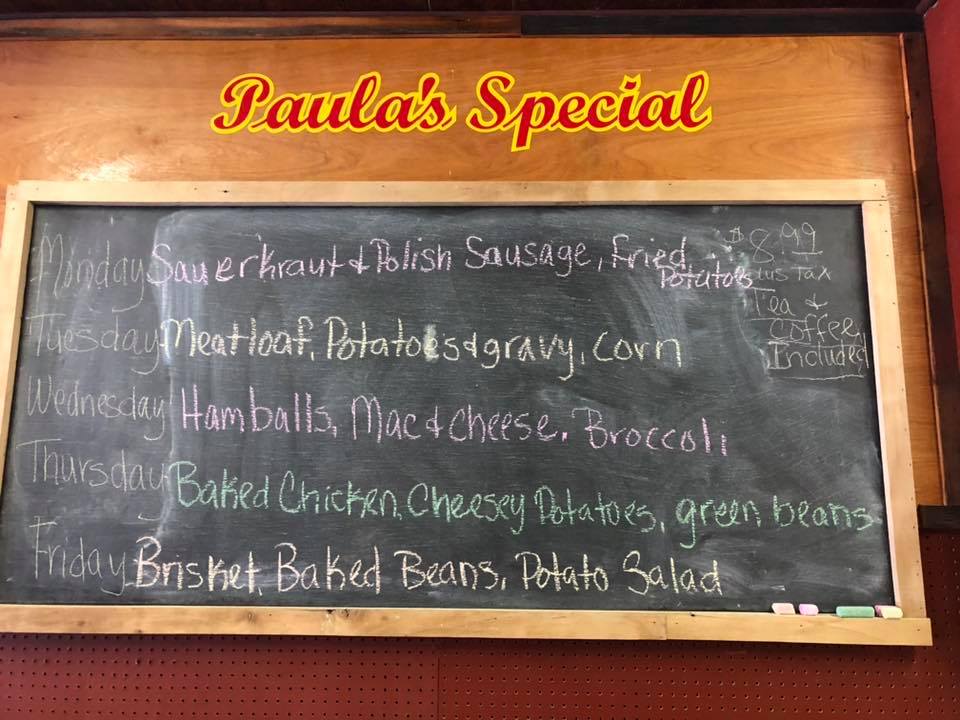 Paula's Special
Monday Sauerkraut & Polish Sausage, Fried
Potatoes
$8.99
plus Tax
Tea &
Coffee
Included
Tuesday Meatloaf, Potatoes & gravy, Corn
Wednesday Hamballs, Mac & cheese, Broccoli
Thursday Baked Chicken, Cheesey Potatoes, green beans
Friday Brisket, Baked Beans, Potato Salad